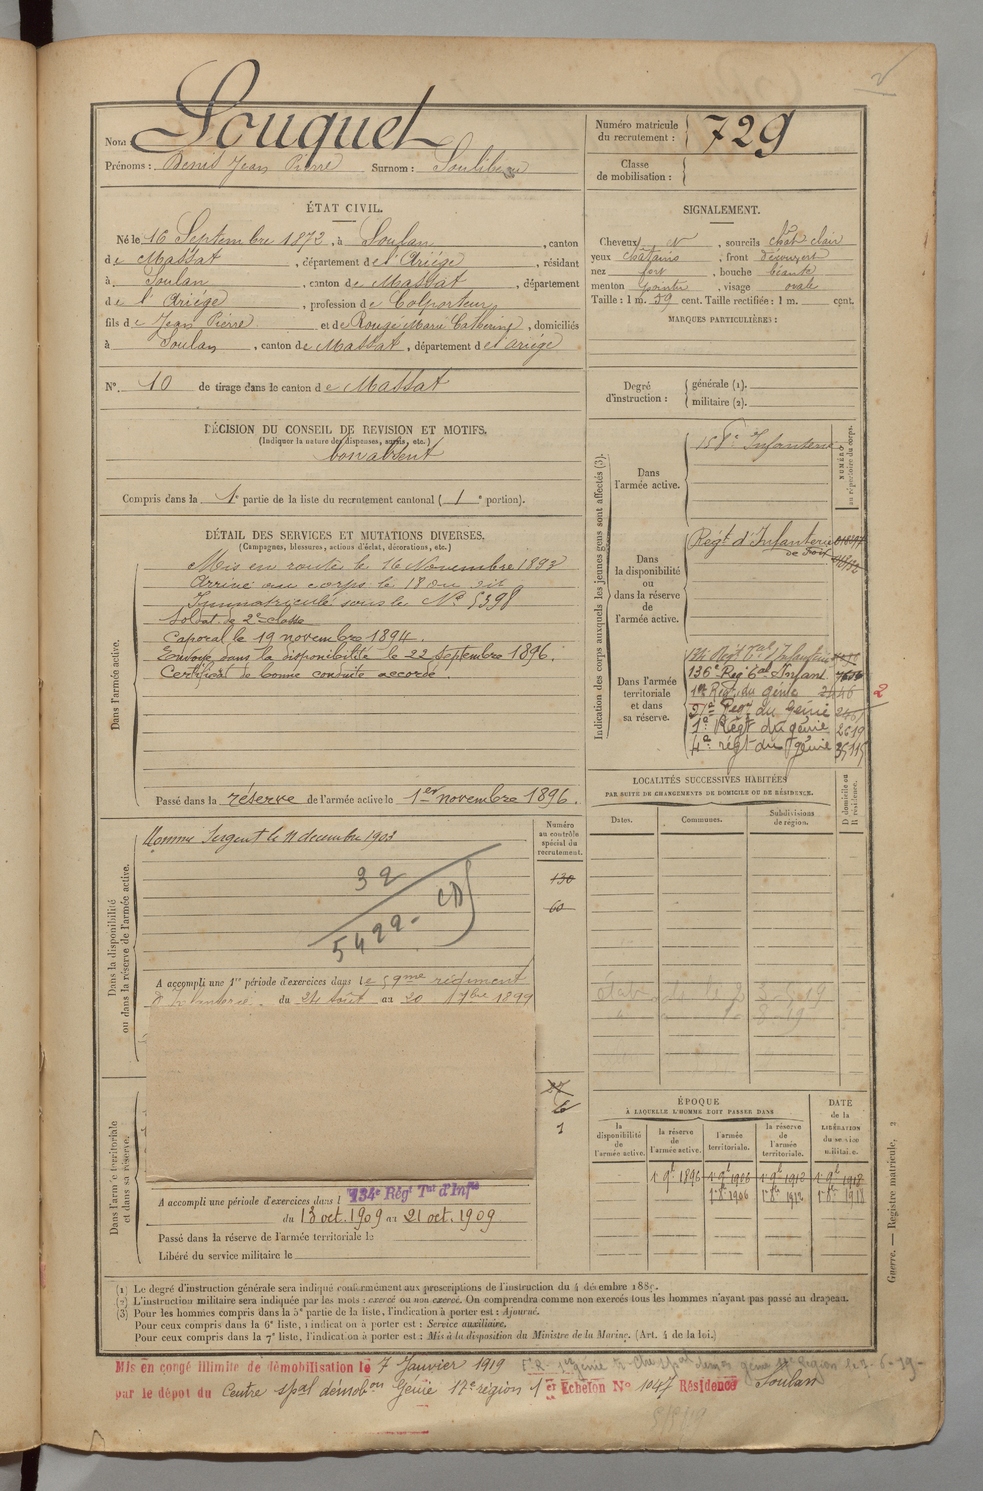 Nom : Souquet
Prénoms : Denis Jean Pierre Surnom :
Numéro matricule du recrutement : 729
Classe de mobilisation :
ÉTAT CIVIL.
Né le 16 Septembre 1872, à Soulan, canton
de Massat, département de l'Ariège, résidant
à Soulan, canton de Massat, département
de l'Ariége, profession de Colporteur
fils de Jean Pierre et de Rougé Marie Catherine, domiciliés
à Soulan, canton de Massat, département de l'ariége
N° 10 de tirage dans le canton de Massat
SIGNALEMENT.
Cheveux N, sourcils chat clair
yeux châtains, front découvert
nez fort, bouche béante
menton pointu, visage ovale
Taille : 1 m. 59 cent. Taille rectifiée : 1 m. cent.
MARQUES PARTICULIÈRES :
Degré d'instruction : générale (1).
militaire (2).
DÉCISION DU CONSEIL DE REVISION ET MOTIFS.
(Indiquer la nature des dispenses, sursis, etc.)
bon absent
Compris dans la 1e partie de la liste du recrutement cantonal (1e portion).
DÉTAIL DES SERVICES ET MUTATIONS DIVERSES.
(Campagnes, blessures, actions d'éclat, décorations, etc.)
Dans l'armée active.
Mis en route le 16 Novembre 1893
Arrivé au corps le 18 du dit
Immatriculé sous le N° 5398
Soldat de 2e classe
Caporal le 19 novembre 1894.
Envoyé dans la disponibilité le 22 septembre 1896.
Certificat de bonne conduite accordé.
Passé dans la réserve de l'armée active le 1er novembre 1896.
Indication des corps auxquels les jeunes gens sont affectés (3).
NUMÉRO au répertoire du corps.
Dans l'armée active.
158e Infanterie
Dans la disponibilité ou dans la réserve de l'armée active.
Regt d'Infanterie
de Foix
Dans l'armée territoriale et dans sa réserve.
134 Regt Tal d'Infanterie
136e Reg Tal Infant.
1er Reg. du génie
2
1e Regt du génie 2619
4e régt du génie
LOCALITÉS SUCCESSIVES HABITÉES
PAR SUITE DE CHANGEMENTS DE DOMICILE OU DE RÉSIDENCE.
Dates. Communes. Subdivisions de région. D domicile ou R résidence.
Dans la disponibilité ou dans la réserve de l'armée active.
Nommé Sergent le 11 decembre 1903
32
5422
Numéro au contrôle spécial du recrutement.
130
60
A accompli une 1re période d'exercices dans le 59me régiment
d'Infanterie du 24 Août au 20 7bre 1899
Dans l'armée territoriale et dans sa réserve.
6
1
A accompli une période d'exercices dans l 134e Régt Tal d'Infie
du 13 oct. 1909 au 21 oct. 1909
Passé dans la réserve de l'armée territoriale le
Libéré du service militaire le
ÉPOQUE
À LAQUELLE L'HOMME DOIT PASSER DANS
DATE de la LIBÉRATION du service militaire.
la disponibilité de l'armée active. la réserve de l'armée active. l'armée territoriale. la réserve de l'armée territoriale.
1 9b 1896 1 9b 1906 1 9b 1912 1 9b 1918
1 8b 1906 1 8b 1912 1 8b 1918
Guerre. — Registre matricule, 2
(1) Le degré d'instruction générale sera indiqué conformément aux prescriptions de l'instruction du 4 décembre 1889.
(2) L'instruction militaire sera indiquée par les mots : exercé ou non exercé. On comprendra comme non exercés tous les hommes n'ayant pas passé au drapeau.
(3) Pour les hommes compris dans la 5e partie de la liste, l'indication à porter est : Ajourné.
Pour ceux compris dans la 6e liste, l'indication à porter est : Service auxiliaire.
Pour ceux compris dans la 7e liste, l'indication à porter est : Mis à la disposition du Ministre de la Marine. (Art. 4 de la loi.)
Mis en congé illimité de démobilisation le 7 Janvier 1919
par le dépot du Centre spal démobon Génie 17e région 1er Echelon No 1047 Résidence Soulan